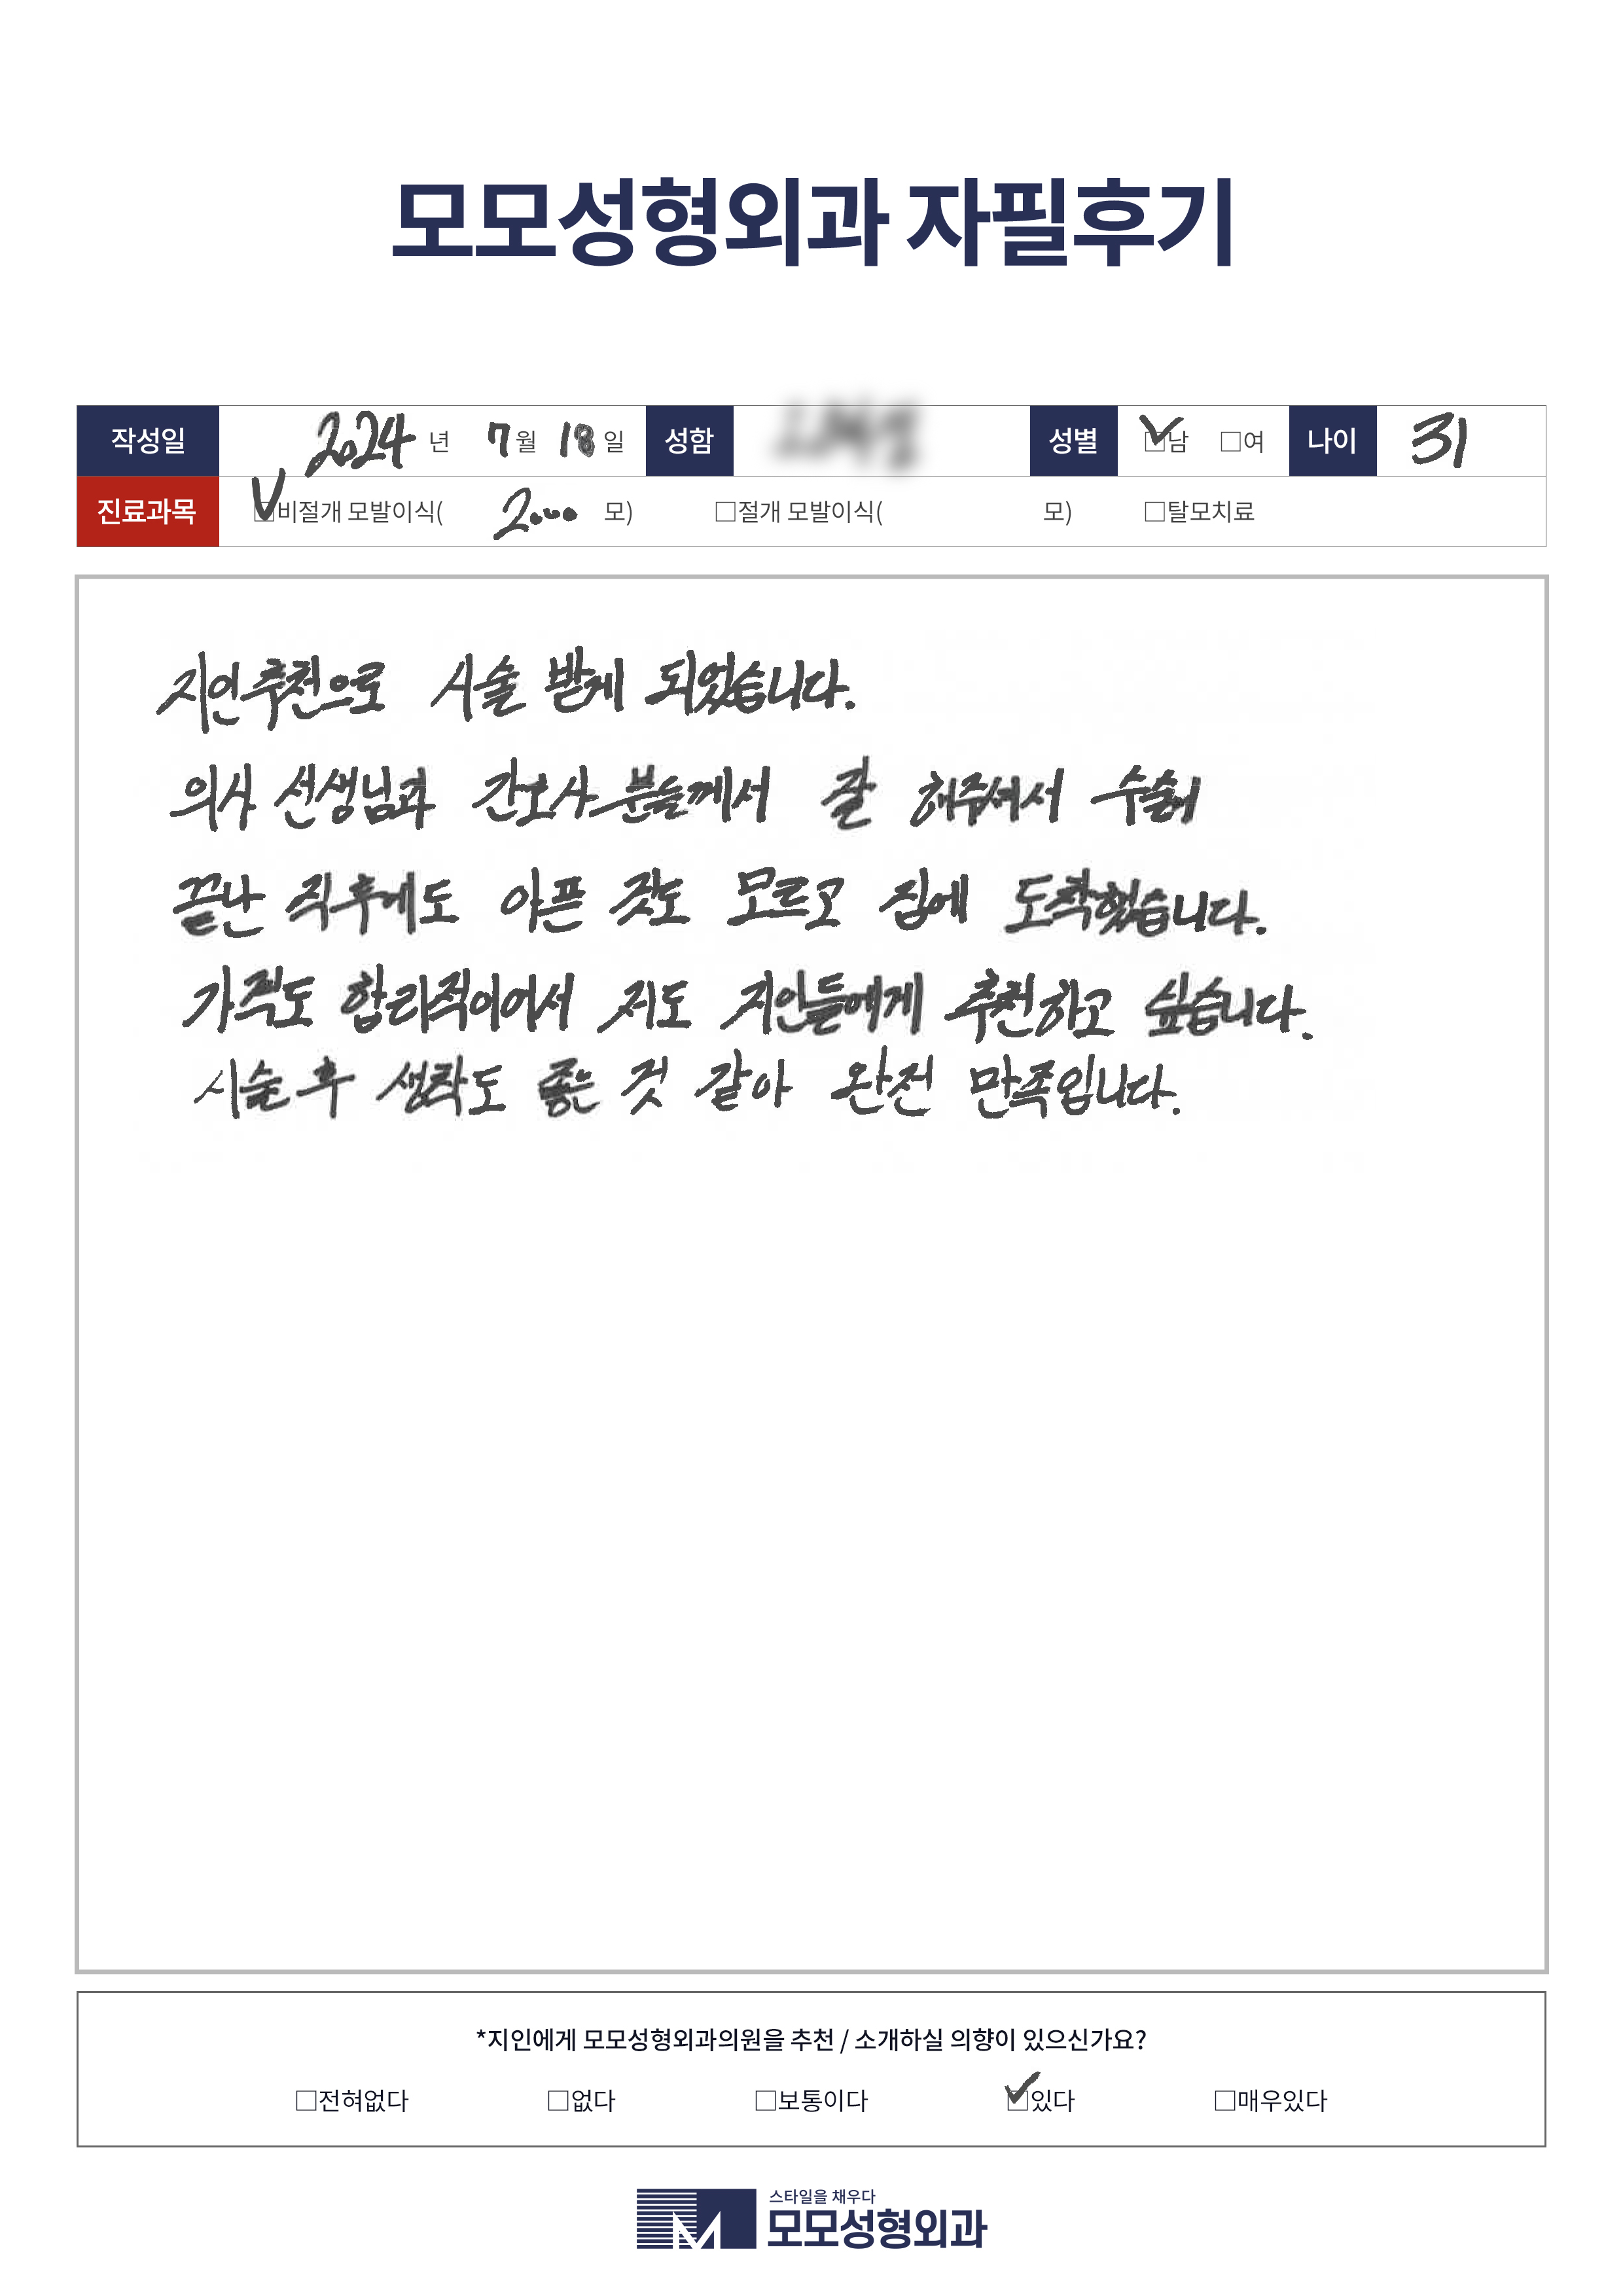 모모성형외과 자필후기
작성일 2024 년 7 월 18 일 성함 성별 ☑남 □여 나이 31
진료과목 ☑비절개 모발이식( 2000 모) □절개 모발이식( 모) □탈모치료
지인추천으로 시술 받게 되었습니다.
의사 선생님과 간호사 분들께서 잘 해주셔서 수술이
끝난 직후에도 아픈 것도 모르고 집에 도착했습니다.
가격도 합리적이어서 저도 지인들에게 추천하고 싶습니다.
시술 후 생착도 좋은 것 같아 완전 만족입니다.
*지인에게 모모성형외과의원을 추천 / 소개하실 의향이 있으신가요?
□전혀없다 □없다 □보통이다 ☑있다 □매우있다
스타일을 채우다
모모성형외과